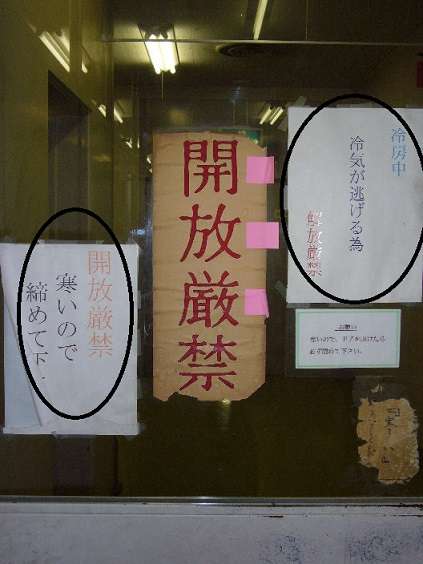 冷房中
冷気が逃げる為
解放厳禁
開放厳禁
開放厳禁
寒いので
締めて下
お願い
寒いので、ドアを開けたら
必ず閉めて下さい。